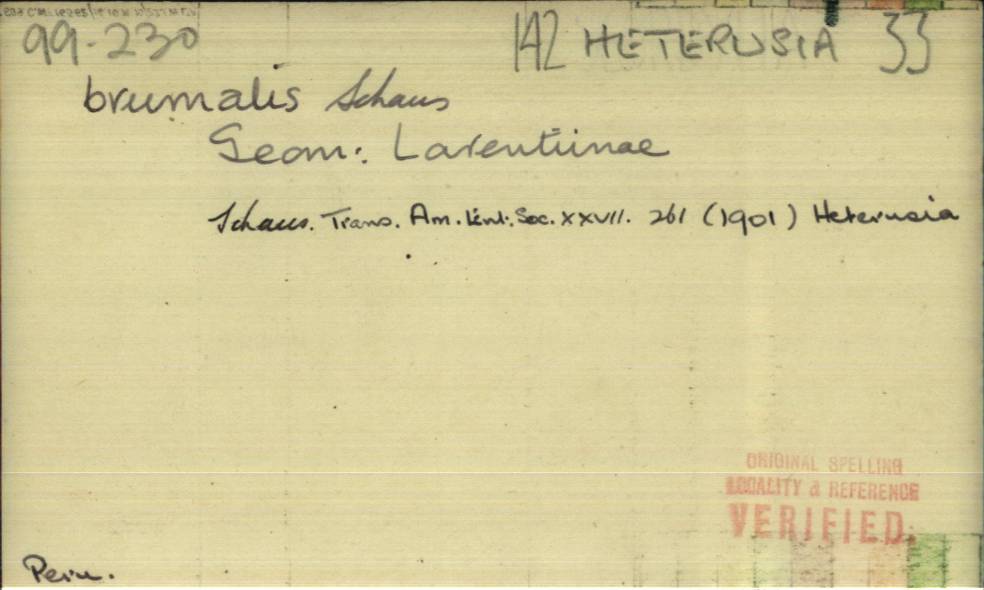 99-230
142 HETERUSIA 33
brumalis Schaus
Geom: Larentiinae
Schaus. Trans. Am. Ent. Soc. XXVII. 261 (1901) Heterusia
ORIGINAL SPELLING
LOCALITY & REFERENCE
VERIFIED.
Peru.